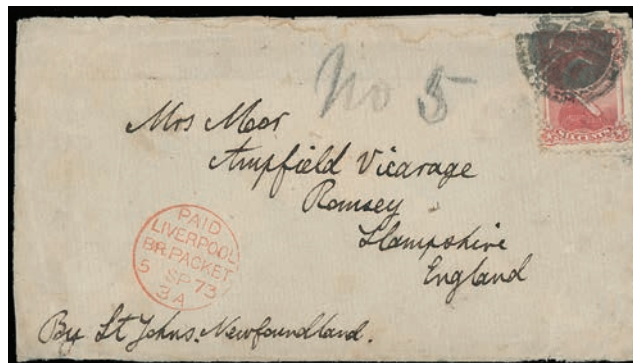 No 5
Mrs Moor
Ampfield Vicarage
Romsey
Hampshire
England
PAID
LIVERPOOL
BR.PACKET
5 SP 73
3A
By St Johns. Newfoundland.